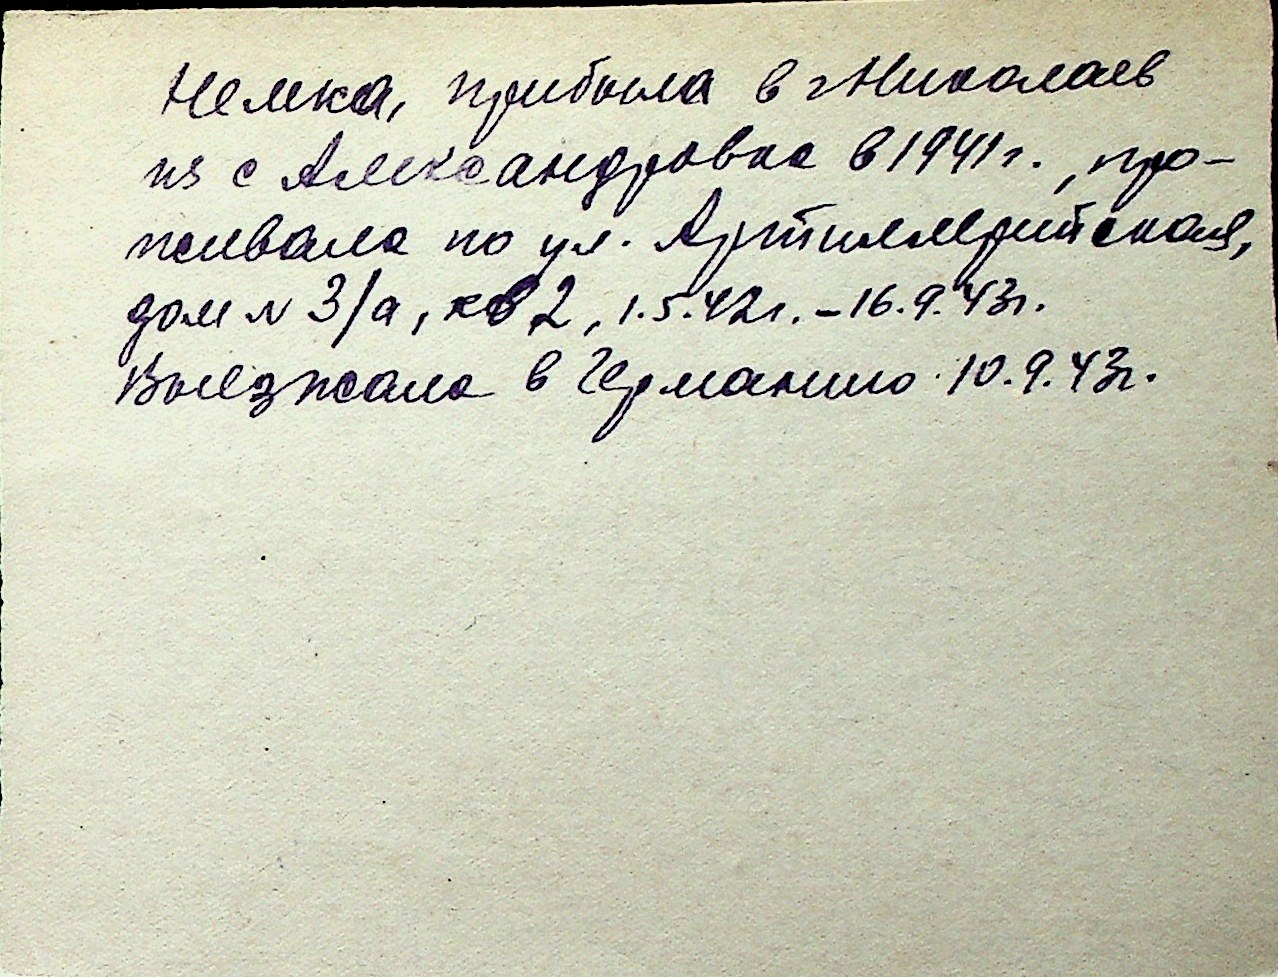 Немка, прибыла в г Николаев
из с Александровка в 1941 г., про-
живала по ул. Артиллерийская,
дом № 3/а, кв 2, 1.5.42 г. – 16.9.43 г.
Выезжала в Германию 10.9.43 г.